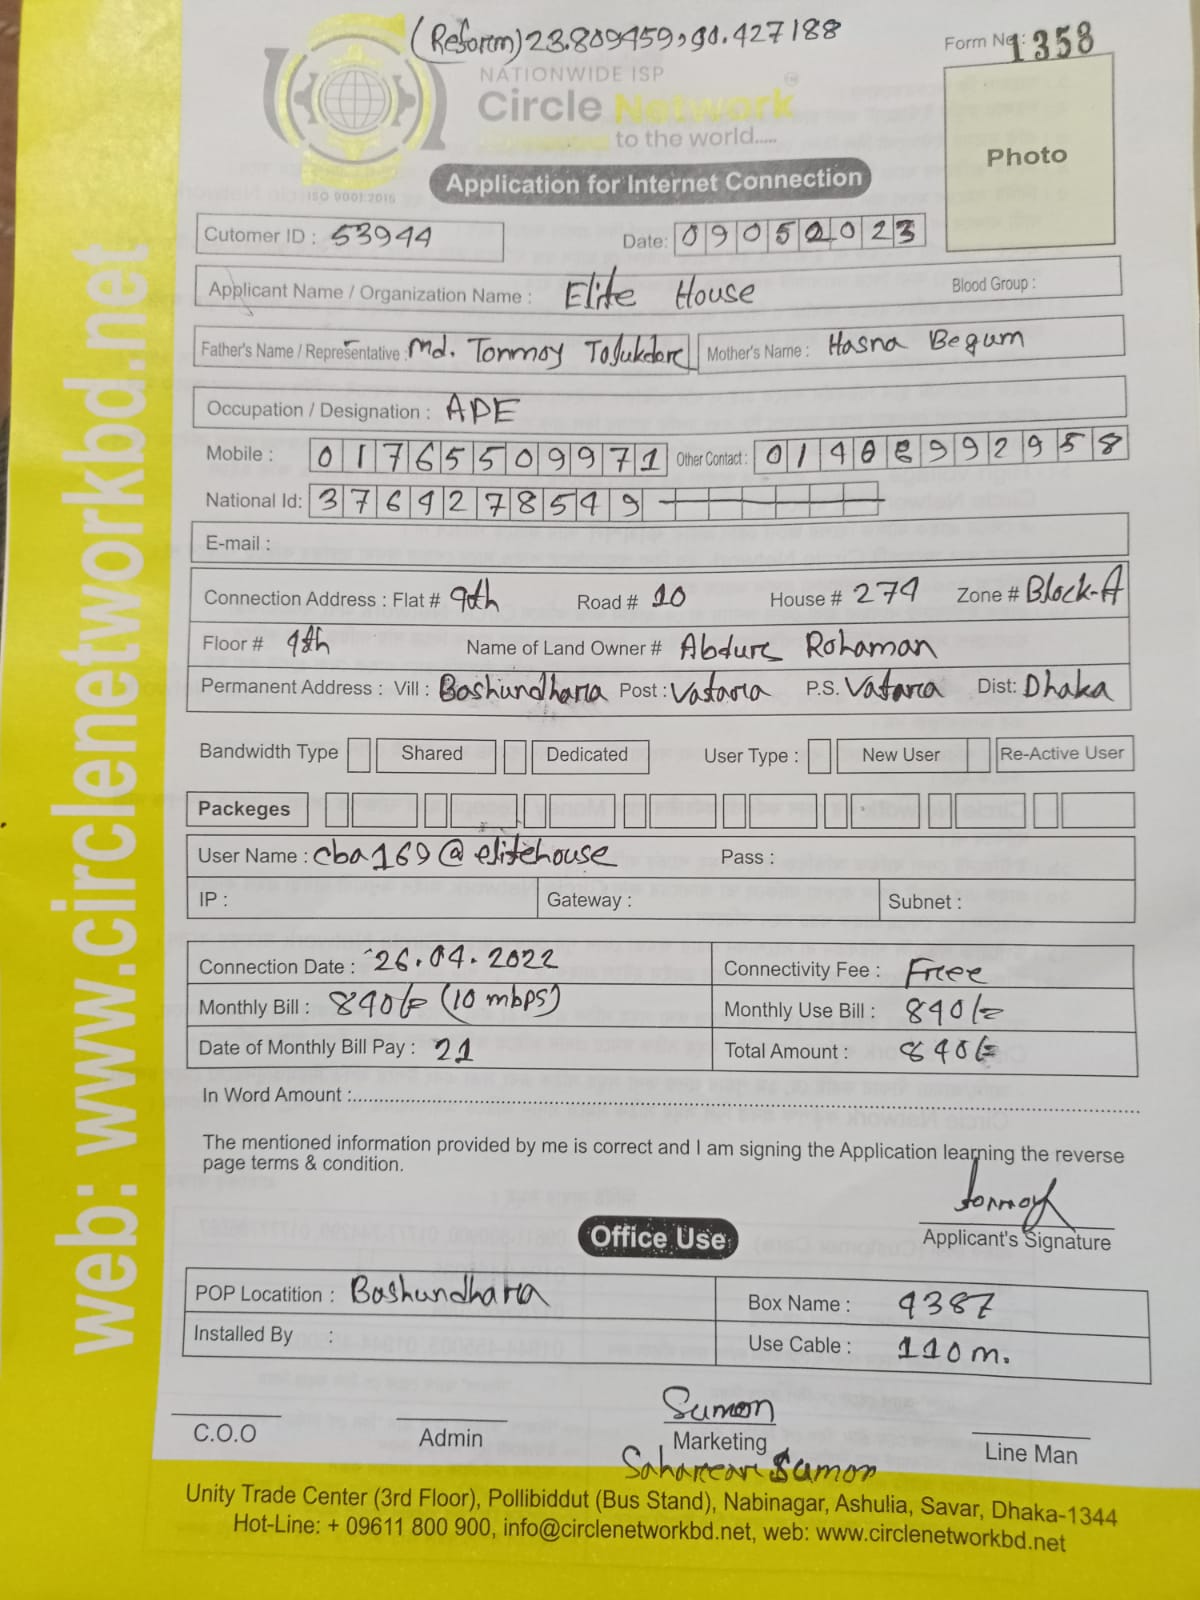 (Reform) 23.809459, 90.427188
Form No: 1358
NATIONWIDE ISP
Circle Network
to the world.....
ISO 9001:2015
Photo
Application for Internet Connection
Cutomer ID : 53944 Date: 09052023
Applicant Name / Organization Name : Elite House Blood Group :
Father's Name / Representative : Md. Tonmoy Talukdere Mother's Name : Hasna Begum
Occupation / Designation : APE
Mobile : 01765509971 Other Contact : 01408992958
National Id: 3764278549
E-mail :
Connection Address : Flat # 9th Road # 10 House # 274 Zone # Block-A
Floor # 9th Name of Land Owner # Abdure Rohaman
Permanent Address : Vill : Bashundhara Post : Vatara P.S. Vatara Dist: Dhaka
Bandwidth Type Shared Dedicated User Type : New User Re-Active User
Packeges
User Name : cba169@elitehouse Pass :
IP : Gateway : Subnet :
Connection Date : 26.04.2022 Connectivity Fee : Free
Monthly Bill : 840/= (10 mbps) Monthly Use Bill : 840/=
Date of Monthly Bill Pay : 21 Total Amount : 840/=
In Word Amount :
The mentioned information provided by me is correct and I am signing the Application learning the reverse
page terms & condition.
tonmoy
Applicant's Signature
Office Use
POP Locatition : Bashundhara Box Name : 4387
Installed By : Use Cable : 110m.
Sumon
C.O.O Admin Marketing Line Man
Sumon
Unity Trade Center (3rd Floor), Pollibiddut (Bus Stand), Nabinagar, Ashulia, Savar, Dhaka-1344
Hot-Line: + 09611 800 900, info@circlenetworkbd.net, web: www.circlenetworkbd.net
web: www.circlenetworkbd.net